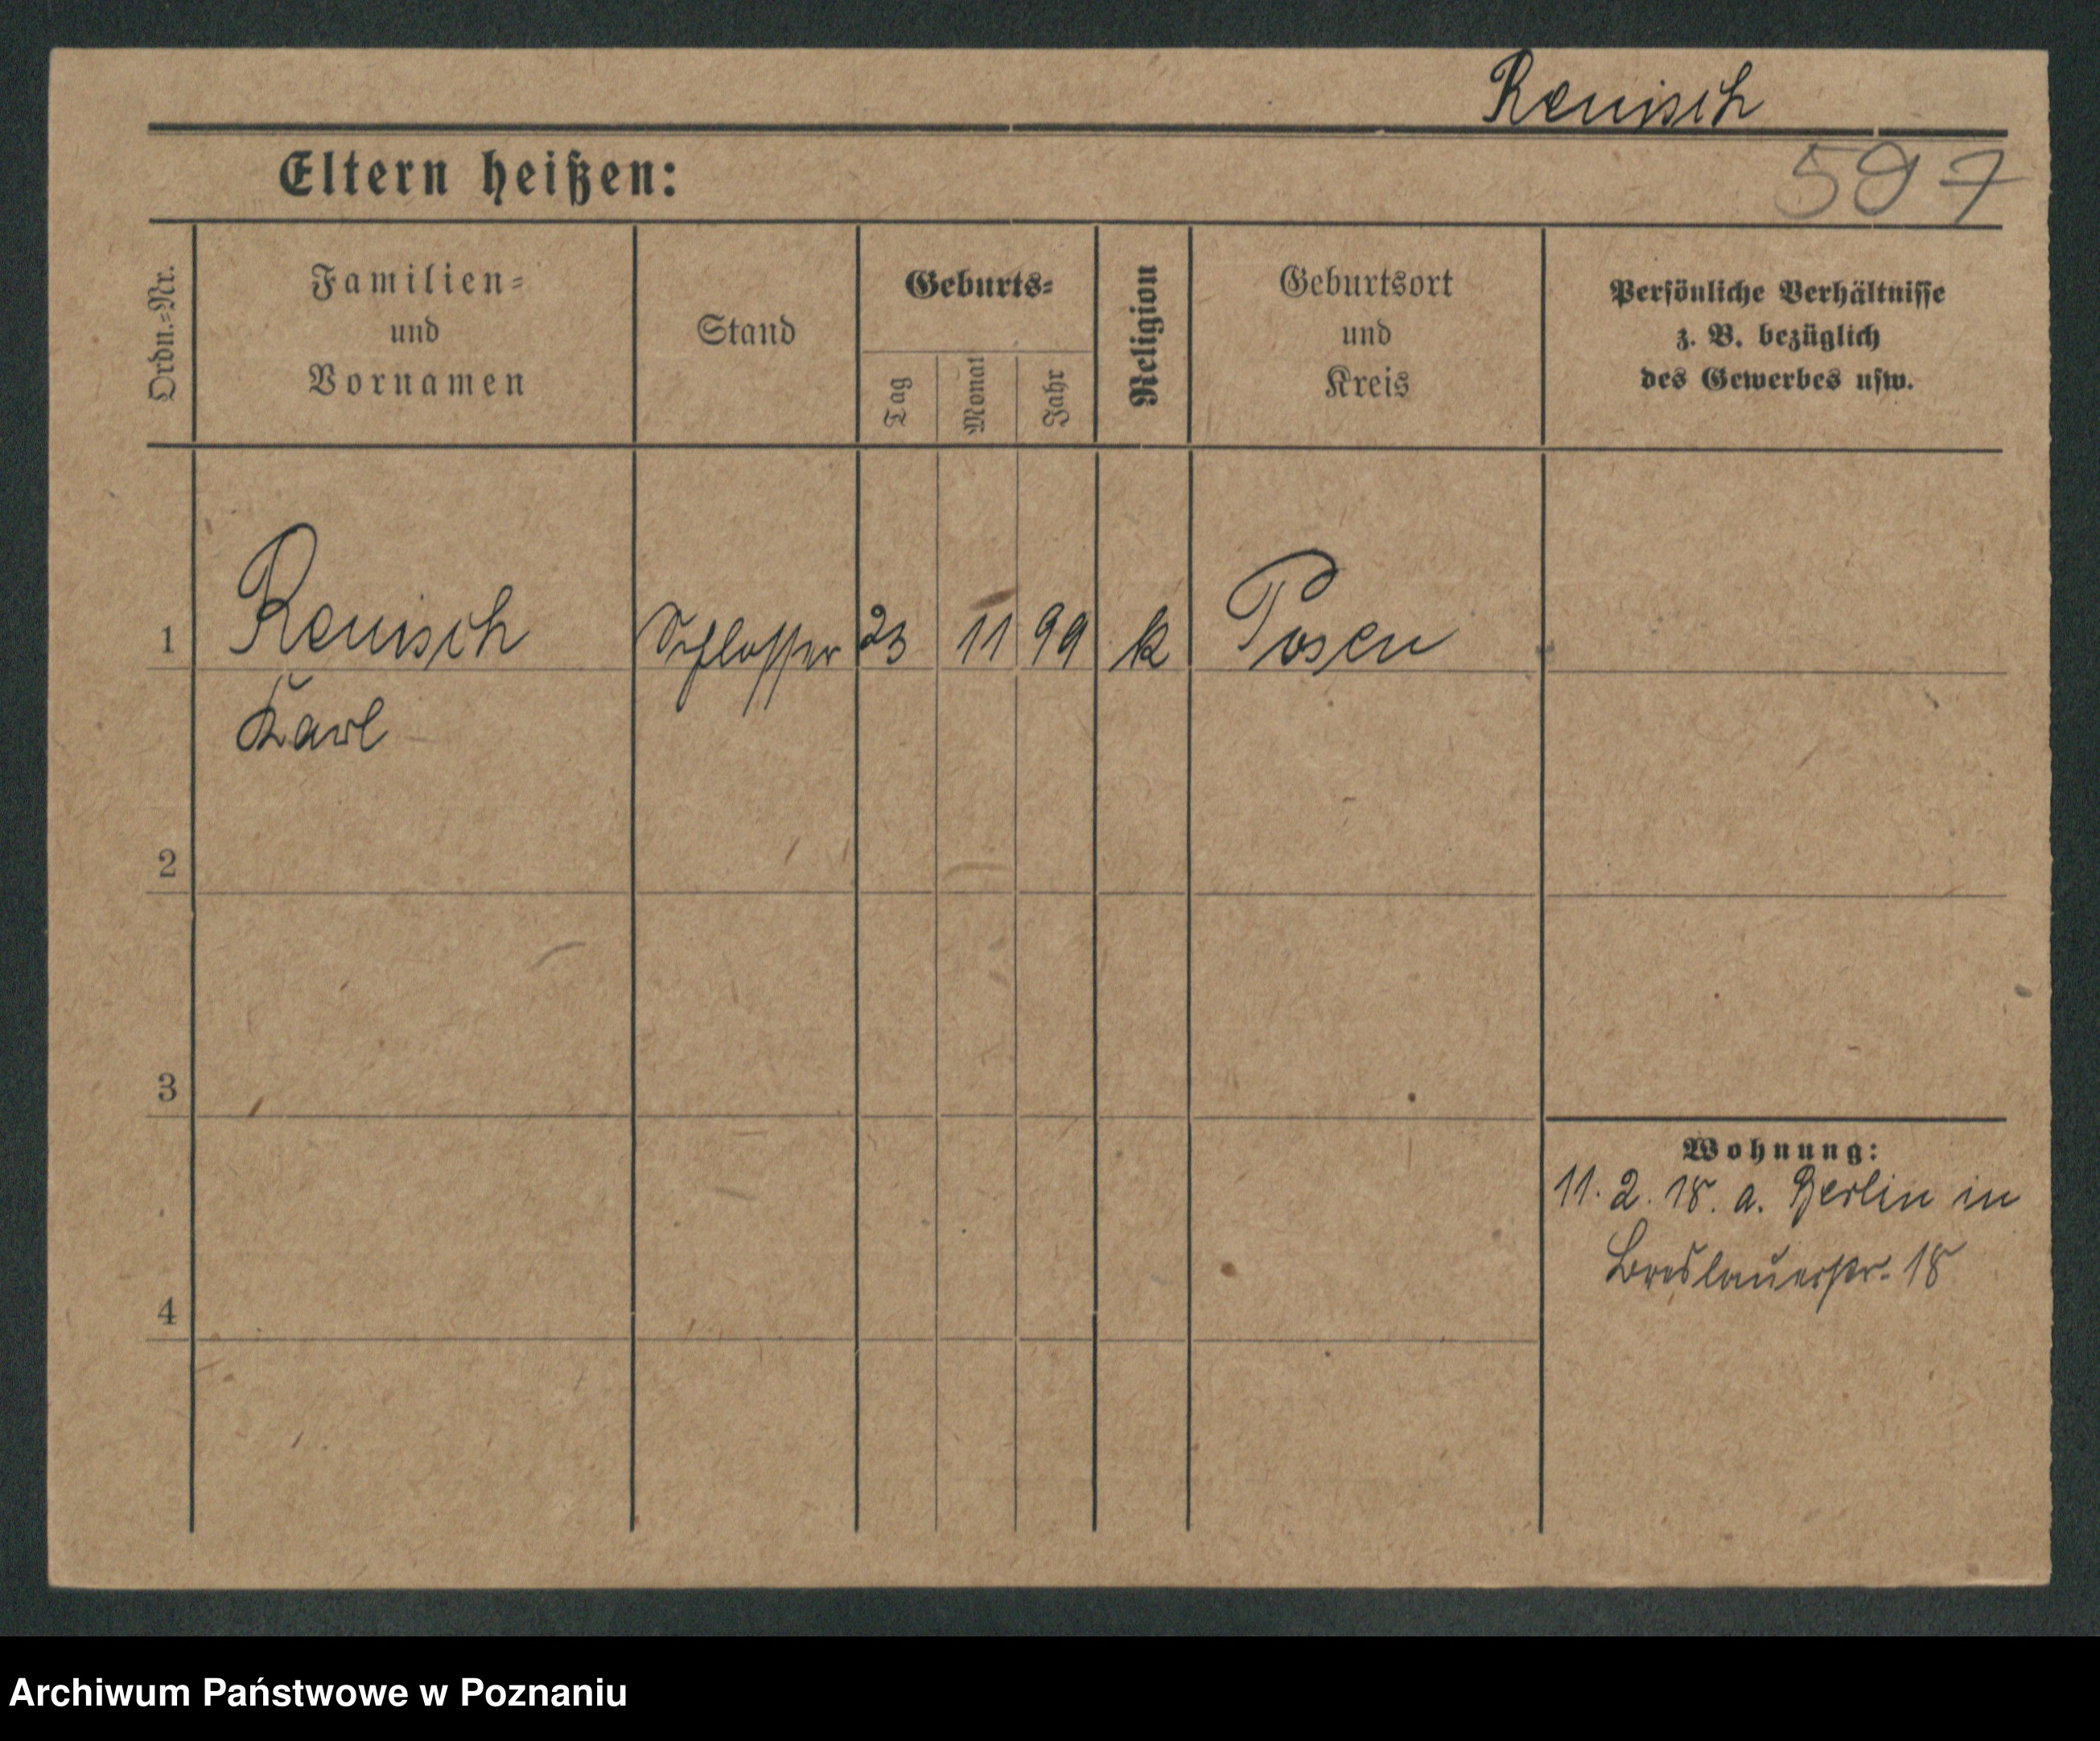 Renisch
Eltern heißen:
597
Ordn.-Nr.
Familien-
und
Vornamen
Stand
Geburts-
Tag
Monat
Jahr
Religion
Geburtsort
und
Kreis
Persönliche Verhältnisse
z. B. bezüglich
des Gewerbes usw.
1 Renisch Schlosser 23 11 99 k Posen
Karl
2
3
Wohnung:
11. 2. 18. a. Berlin in
Breslauerstr. 18
4
Archiwum Państwowe w Poznaniu